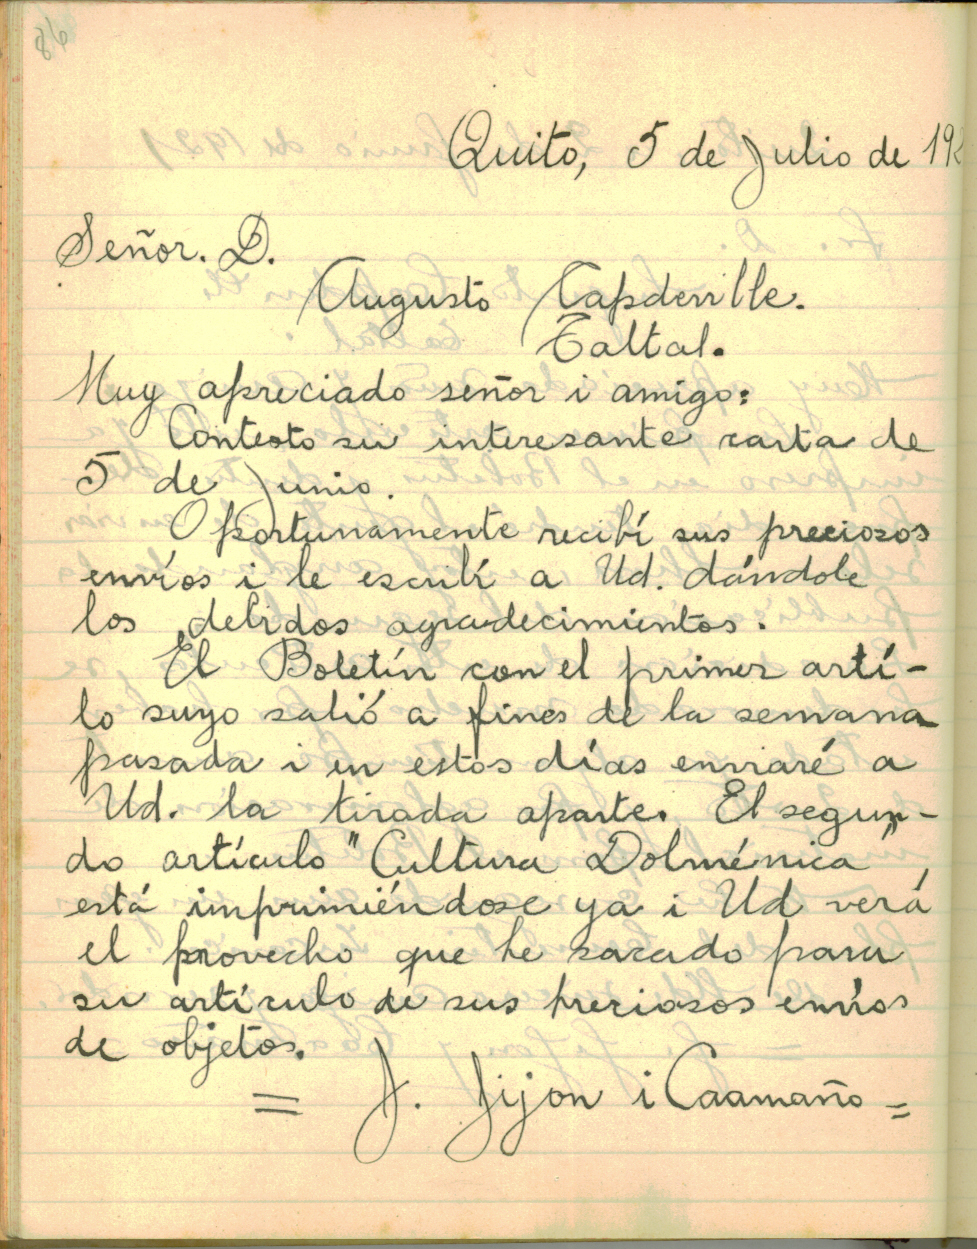 Quito, 5 de Julio de 192
Señor. D.
Augusto Capdeville.
Taltal.
Muy apreciado señor i amigo:
Contesto su interesante carta de
5 de Junio.
Oportunamente recibí sus preciosos
envíos i le escribí a Ud. dándole
los debidos agradecimientos.
El Boletín con el primer artí-
lo suyo salió a fines de la semana
pasada i en estos días enviaré a
Ud. la tirada aparte. El segun-
do artículo "Cultura Dolménica"
está imprimiéndose ya i Ud verá
el provecho que he sacado para
su artículo de sus preciosos envíos
de objetos.
= J. Jijon i Caamaño =